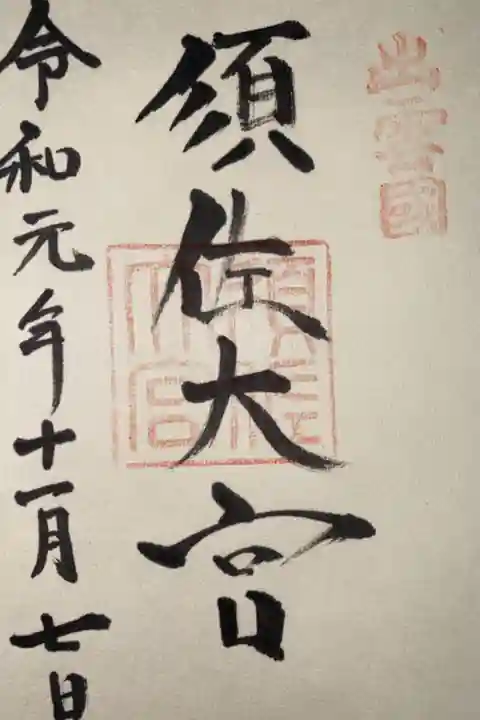 出雲國
須佐大宮
須佐大宮
令和元年十一月七日